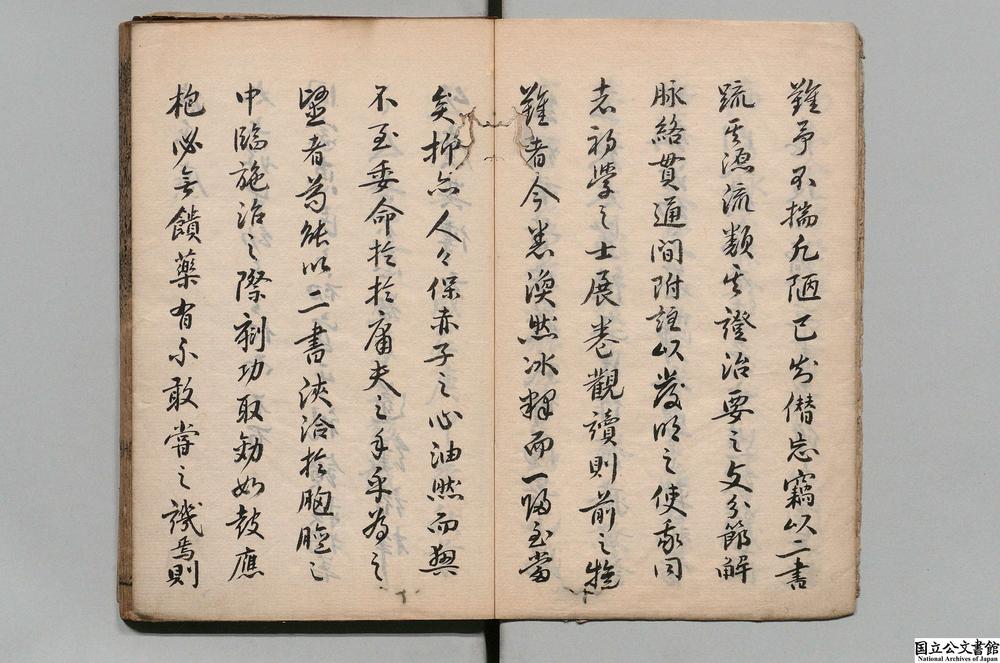 難予不揣凡陋已忘僭忘竊以二書
疏其源流類其證治要之文分節解
脉絡貫通間附註以發明之使我同
志初學之士展卷觀讀則前之難
難者今悉渙然冰釋而一歸至當
矣抑亦人々保赤子之心油然而興
不至委命於於庸夫之手乎為之
醫者茍能以二書浹洽於胸臆之
中臨施治之際刻功取効如鼓應
枹必無饋藥有不敢嘗之譏焉則
国立公文書館
National Archives of Japan